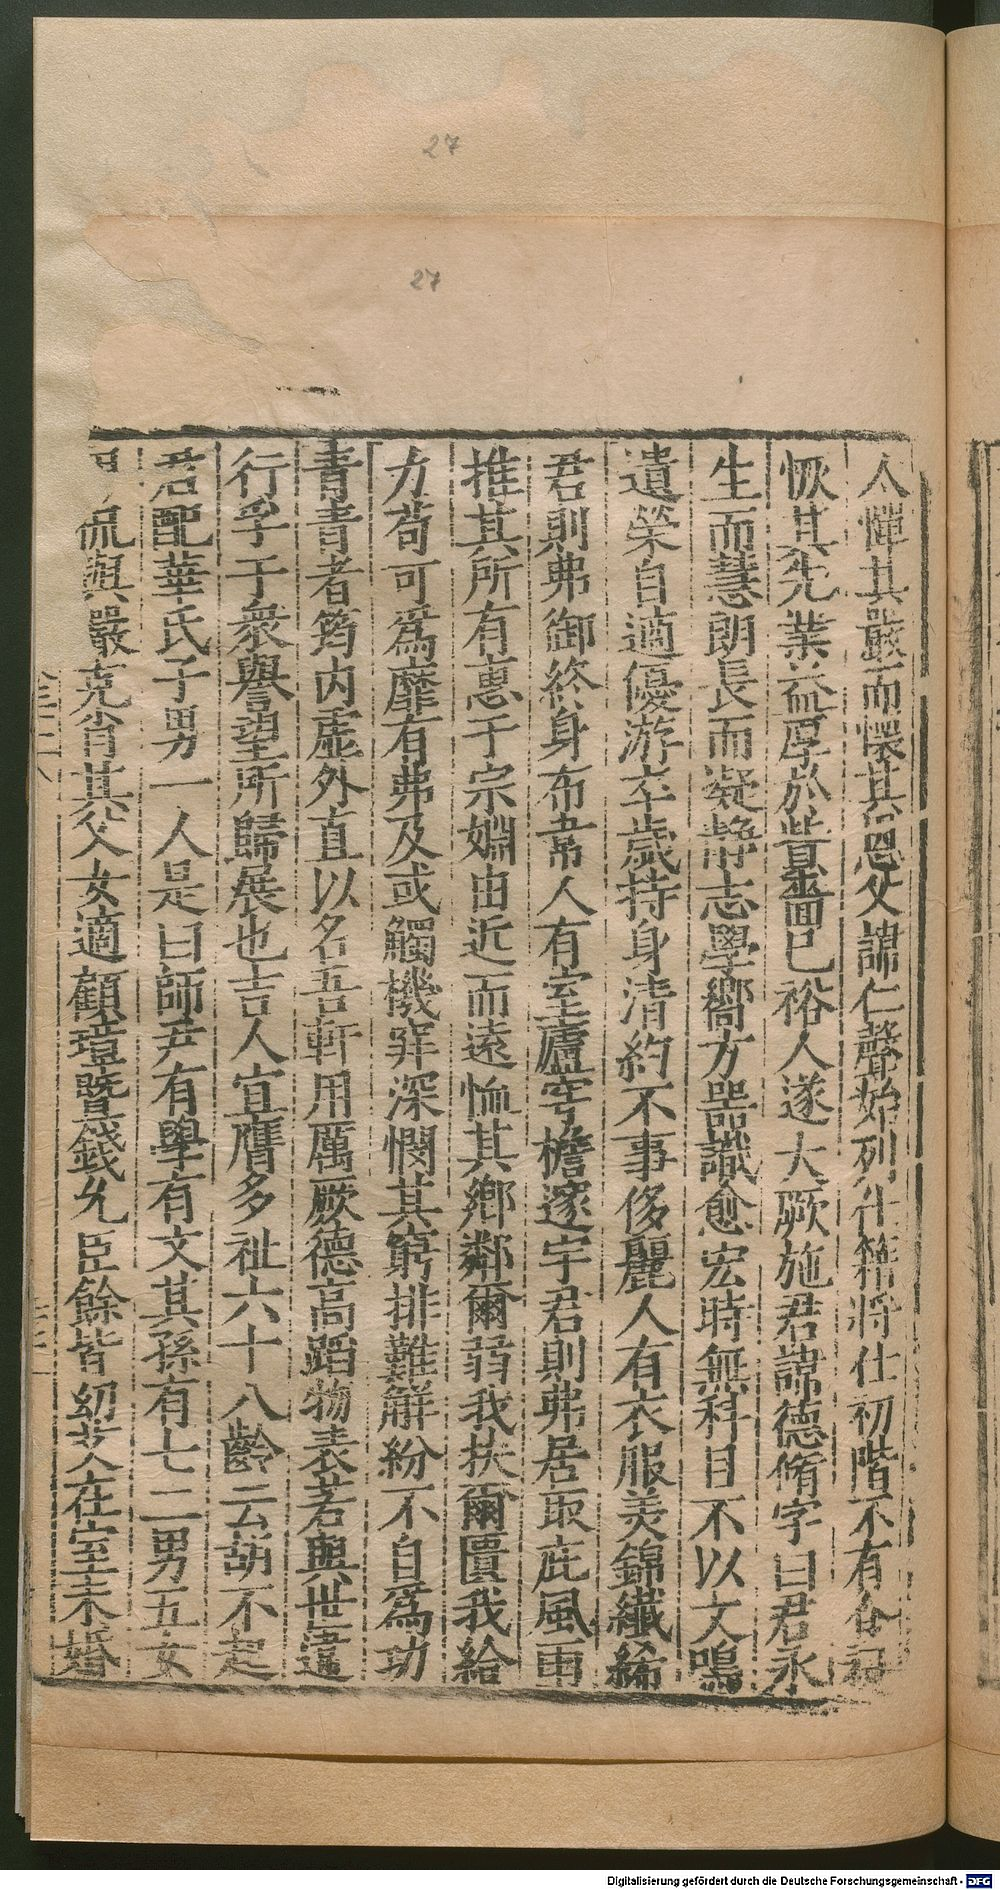 27
27
人憚其嚴而懷其恩父諱仁聲始列仕籍將仕初階不有令
恢其先業益厚於貲嗇巳裕人遂大厥施君諱德脩字曰君永
生而慧朗長而凝靜志學嚮方器識愈宏時無科目不以文鳴
遺榮自適優游卒歲持身清約不事侈麗人有衣服美錦纖絺
君則弗御終身布韋人有室廬穹檐邃宇君則弗居取庇風雨
推其所有惠于宗婣由近而遠恤其鄉鄰爾弱我扶爾匱我給
力苟可爲靡有弗及或觸機穽深憫其窮排難觧紛不自爲功
青青者筠内虛外直以名吾軒用厲厥德高蹈物表若與世違
行孚于衆譽望所歸展也吉人宜膺多祉六十八齡云胡不起
君配華氏子男一人是曰師尹有學有文其孫有七二男五女
侃與嚴克肖其父女適顧瑄暨錢允臣餘皆幼艾在室未婚
Digitalisierung gefördert durch die Deutsche Forschungsgemeinschaft - DFG